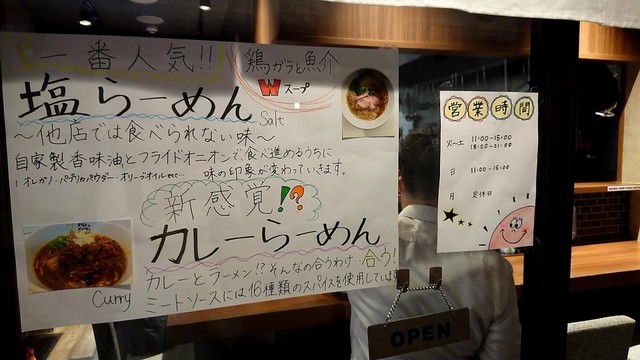 一番人気!!
鶏ガラと魚介
Wスープ
塩らーめん
Salt
～他店では食べられない味～
自家製香味油とフライドオニオンで食べ進めるうちに
味の印象が変わっていきます。
新感覚!?
カレーらーめん
カレーとラーメン!?そんなの合うわけ…合う!
Curry
ミートソースには16種類のスパイスを使用しています
営業時間
火～土 11:00-15:00
18:00-21:00
日 11:00-15:00
月 定休日
OPEN